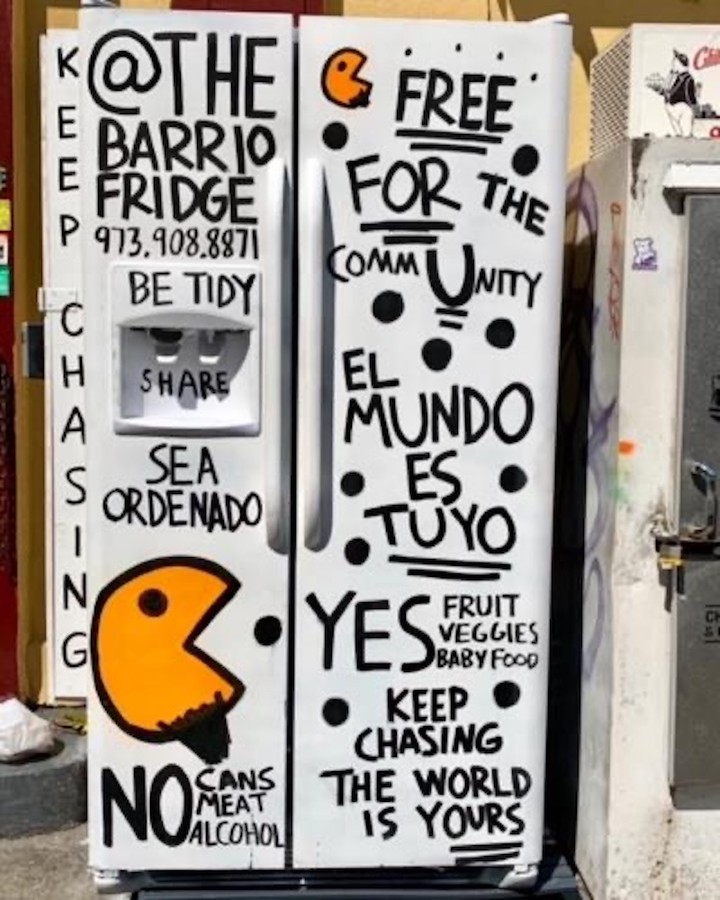 KEEP CHASING
@THE
BARRIO
FRIDGE
973.908.8871
BE TIDY
SHARE
SEA
ORDENADO
NO CANS
MEAT
ALCOHOL
FREE
FOR THE
COMMUNITY
EL
MUNDO
ES
TUYO
YES FRUIT
VEGGIES
BABY FOOD
KEEP
CHASING
THE WORLD
IS YOURS